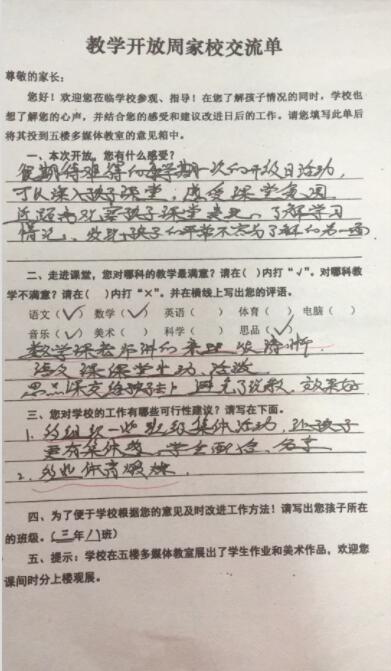 教学开放周家校交流单
尊敬的家长：
您好！欢迎您莅临学校参观、指导！在您了解孩子情况的同时，学校也
想了解您的心声，并结合您的感受和建议改进日后的工作。请您填写此单后
将其投到五楼多媒体教室的意见箱中。
一、本次开放，您有什么感受？
很期待难得的每学期一次的开放日活动，
可以深入孩子课堂，感受课堂氛围
近距离观察孩子课堂表现，了解学习
情况，发现孩子的平常不太为了解的另一面
二、走进课堂，您对哪科的教学最满意？请在（ ）内打“√”。对哪科教
学不满意？请在（ ）内打“×”。并在横线上写出您的评语。
语文（√） 数学（√） 英语（ ） 体育（ ） 电脑（ ）
音乐（√） 美术（ ） 科学（ ） 思品（√）
数学课老师讲的 很清晰
语文课 生动、活泼
思品课 给孩子 避免了说教，效果好
三、您对学校的工作有哪些可行性建议？请写在下面。
1. 多组织一些班级集体活动，让孩子
更有集体感，学会配合、分享
2. 多些体育锻炼
四、为了便于学校根据您的意见及时改进工作方法！请写出您孩子所在
的班级。（三年八班）
五、提示：学校在五楼多媒体教室展出了学生作业和美术作品，欢迎您
课间时分上楼观展。